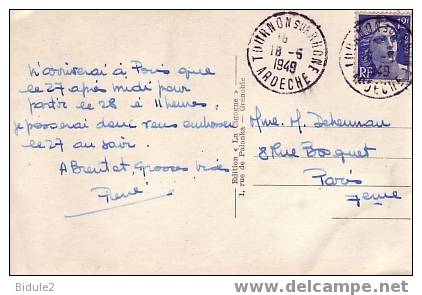 N'arriverai à Paris que
le 27 après midi pour
partir le 28 à 11 heures.
je passerai donc vous embrasser
le 27 au soir.
A Bientôt, Grosses bises
René
Edition « La Cigogne »
1, rue de Palanka - Grenoble
TOURNON SUR RHONE
18 -5
1949
ARDECHE
RF
Mme. M.
8 Rue Bosquet
Paris
7eme
Bidule2
delcampe.net